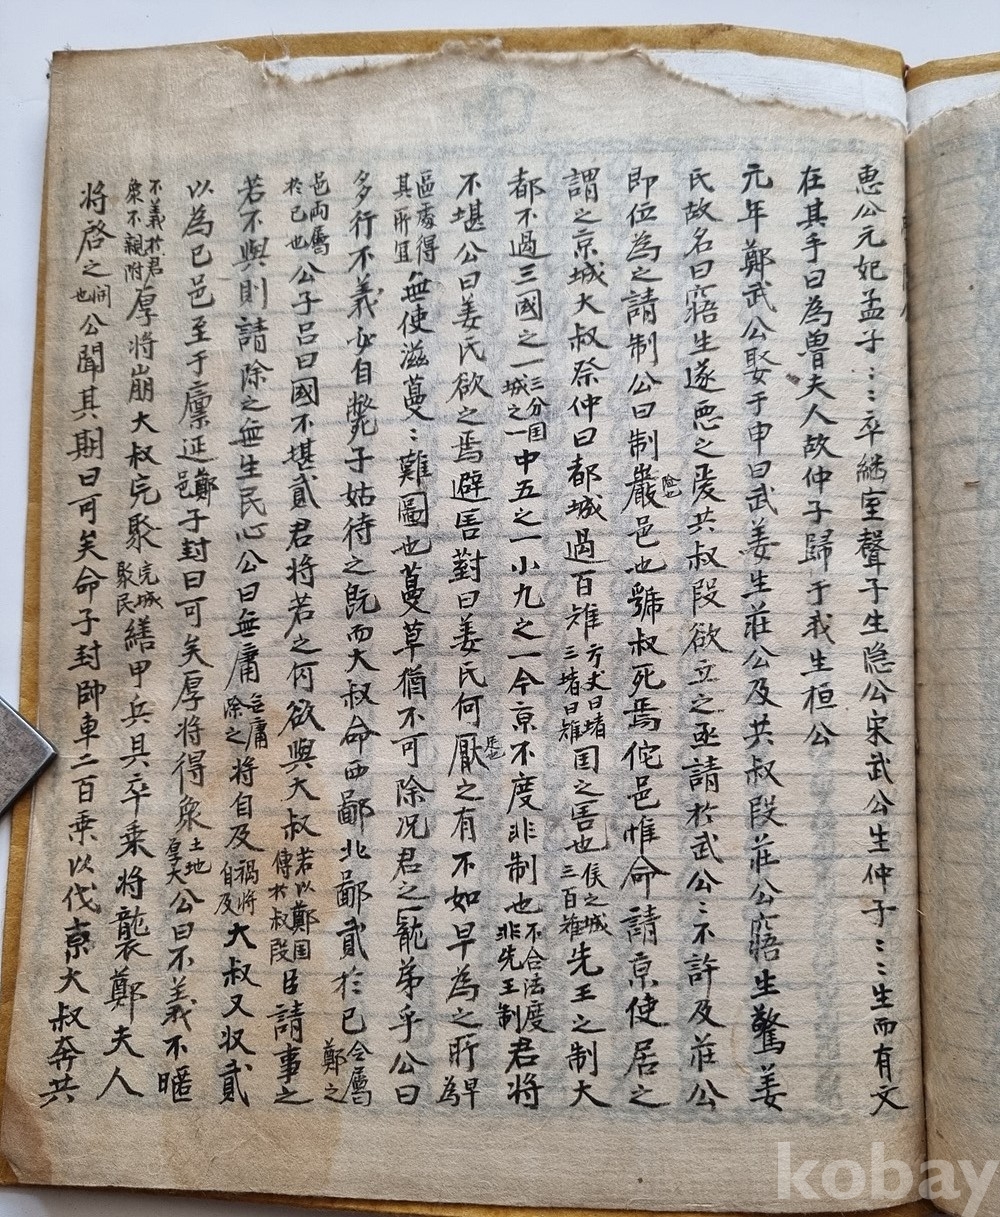 惠公元妃孟子〻〻卒継室聲子生隐公宋武公生仲子〻〻生而有文
在其手曰為魯夫人故仲子歸于我生桓公
元年鄭武公娶于申曰武姜生莊公及共叔段莊公寤生驚姜
氏故名曰寤生遂惡之爱共叔段欲立之亟請於武公〻不許及莊公
即位為之請制公曰制巖險也邑也虢叔死焉佗邑惟命請京使居之
謂之京城大叔祭仲曰都城過百雉方丈曰堵三堵曰雉国之害也侯之城三百雉先王之制大
都不過三國之一三分国城之一中五之一小九之一今京不度非制也不合法度非先王制君将
不堪公曰姜氏欲之焉避害對曰姜氏何厭足也之有不如早為之所早為
區處得其所宜無使滋蔓〻難圖也蔓草猶不可除况君之寵弟乎公曰
多行不義必自斃子姑待之既而大叔命西鄙北鄙貳於已令屬鄭之
邑两屬於已也公子吕曰國不堪貳君将若之何欲與大叔若以鄭国傳於叔段臣請事之
若不與則請除之無生民心公曰無庸無庸除之将自及祸将自及大叔又収貳
以為已邑至于廪延鄭邑子封曰可矣厚将得衆土地厚大公曰不義不暱
不義於君衆不親附厚将崩大叔完聚完城聚民繕甲兵具卒乗将襲鄭夫人
将啓之開也公聞其期曰可矣命子封帥車二百乗以伐京大叔奔共
kobay